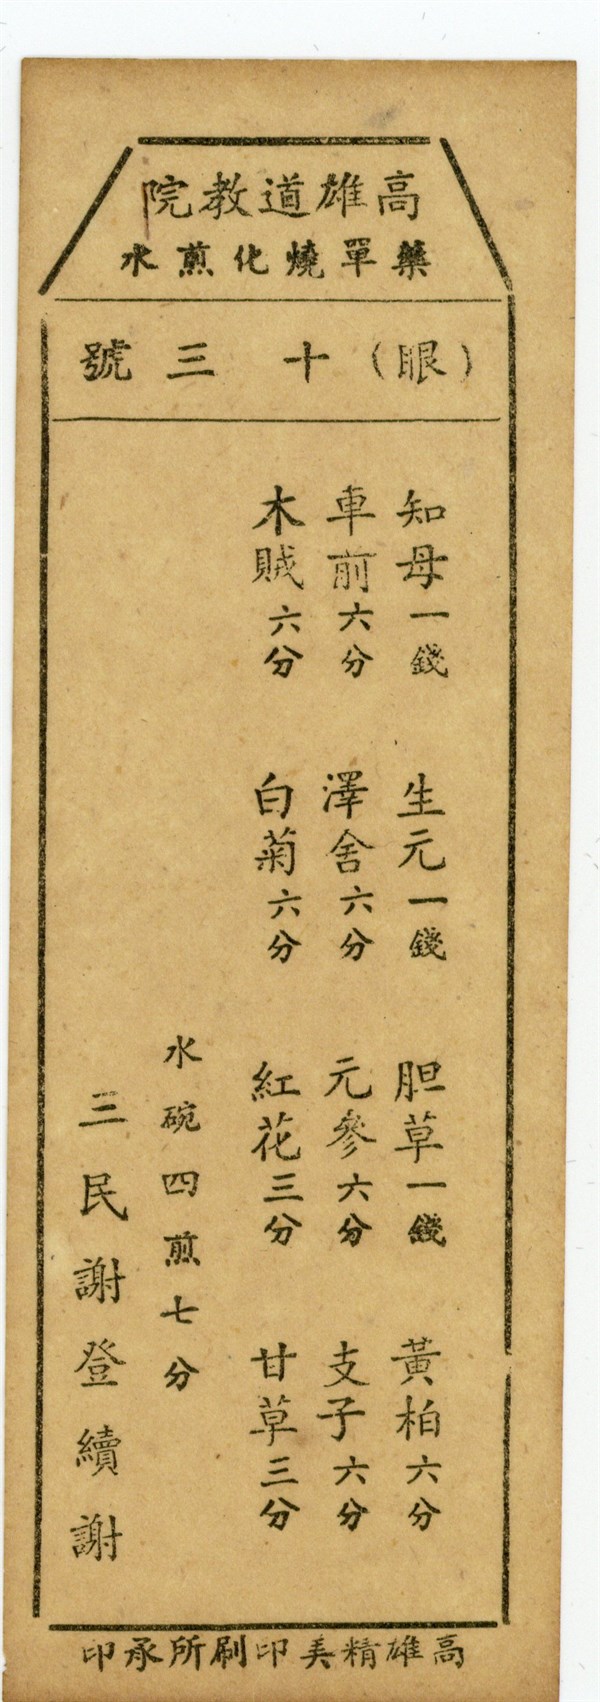 高雄道教院
藥單燒化煎水
（眼）十三號
知母一錢 生元一錢 胆草一錢 黃柏六分
車前六分 澤舍六分 元參六分 支子六分
木賊六分 白菊六分 紅花三分 甘草三分
水碗四煎七分
三民謝登續謝
高雄精美印刷所承印